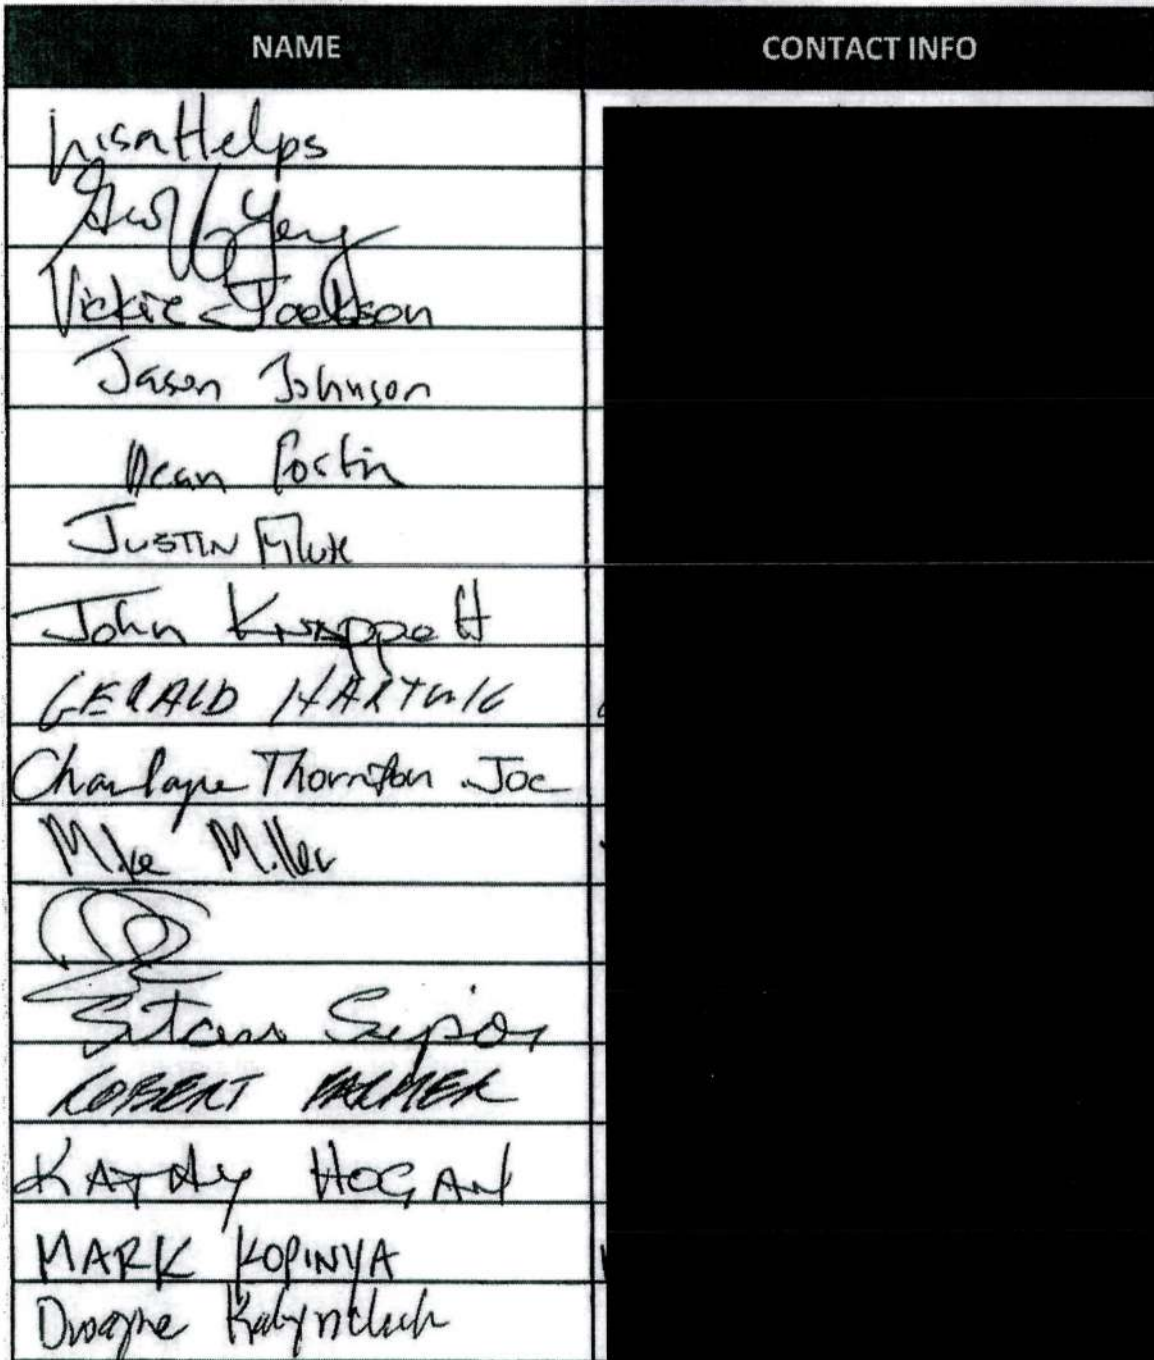 NAME CONTACT INFO
Lisa Helps
Geoff Young
Vickie Jackson
Jason Johnson
Dean Fortin
JUSTIN
John Knappett
GERALD HARTWIG
Charlayne Thornton-Joe
Mike Miller
ROBERT PALMER
KATHY HOGAN
MARK KOPINYA
Dwayne Kalynchuk